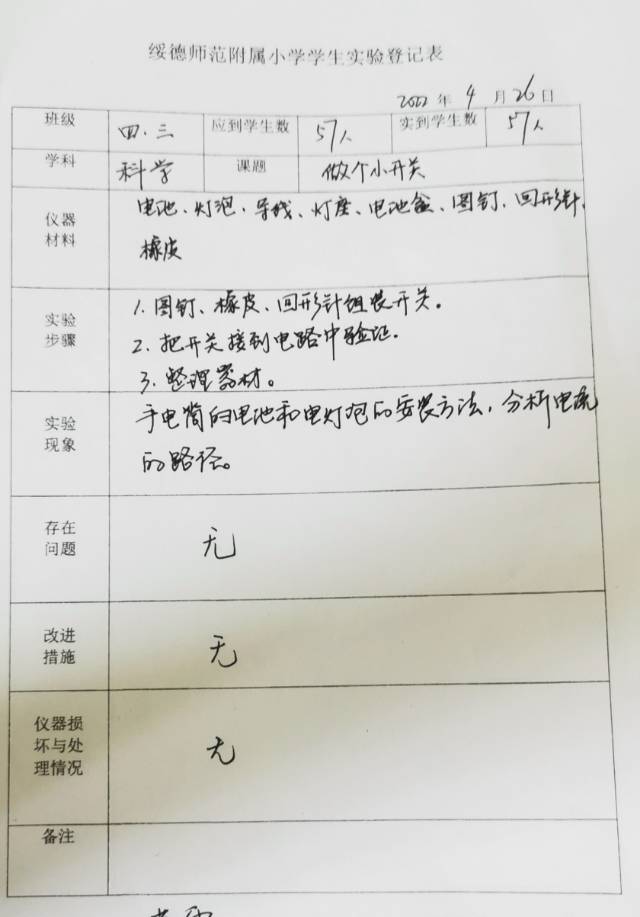 绥德师范附属小学学生实验登记表
2022 年 4 月 26 日
班级 四.三 应到学生数 57人 实到学生数 57人
学科 科学 课题 做个小开关
仪器材料 电池、灯泡、导线、灯座、电池盒、图钉、回形针、
橡皮
实验步骤 1. 图钉、橡皮、回形针组装开关。
2. 把开关接到电路中验证.
3. 整理器材。
实验现象 手电筒的电池和电灯泡的安装方法，分析电流
的路径。
存在问题 无
改进措施 无
仪器损坏与处理情况 无
备注